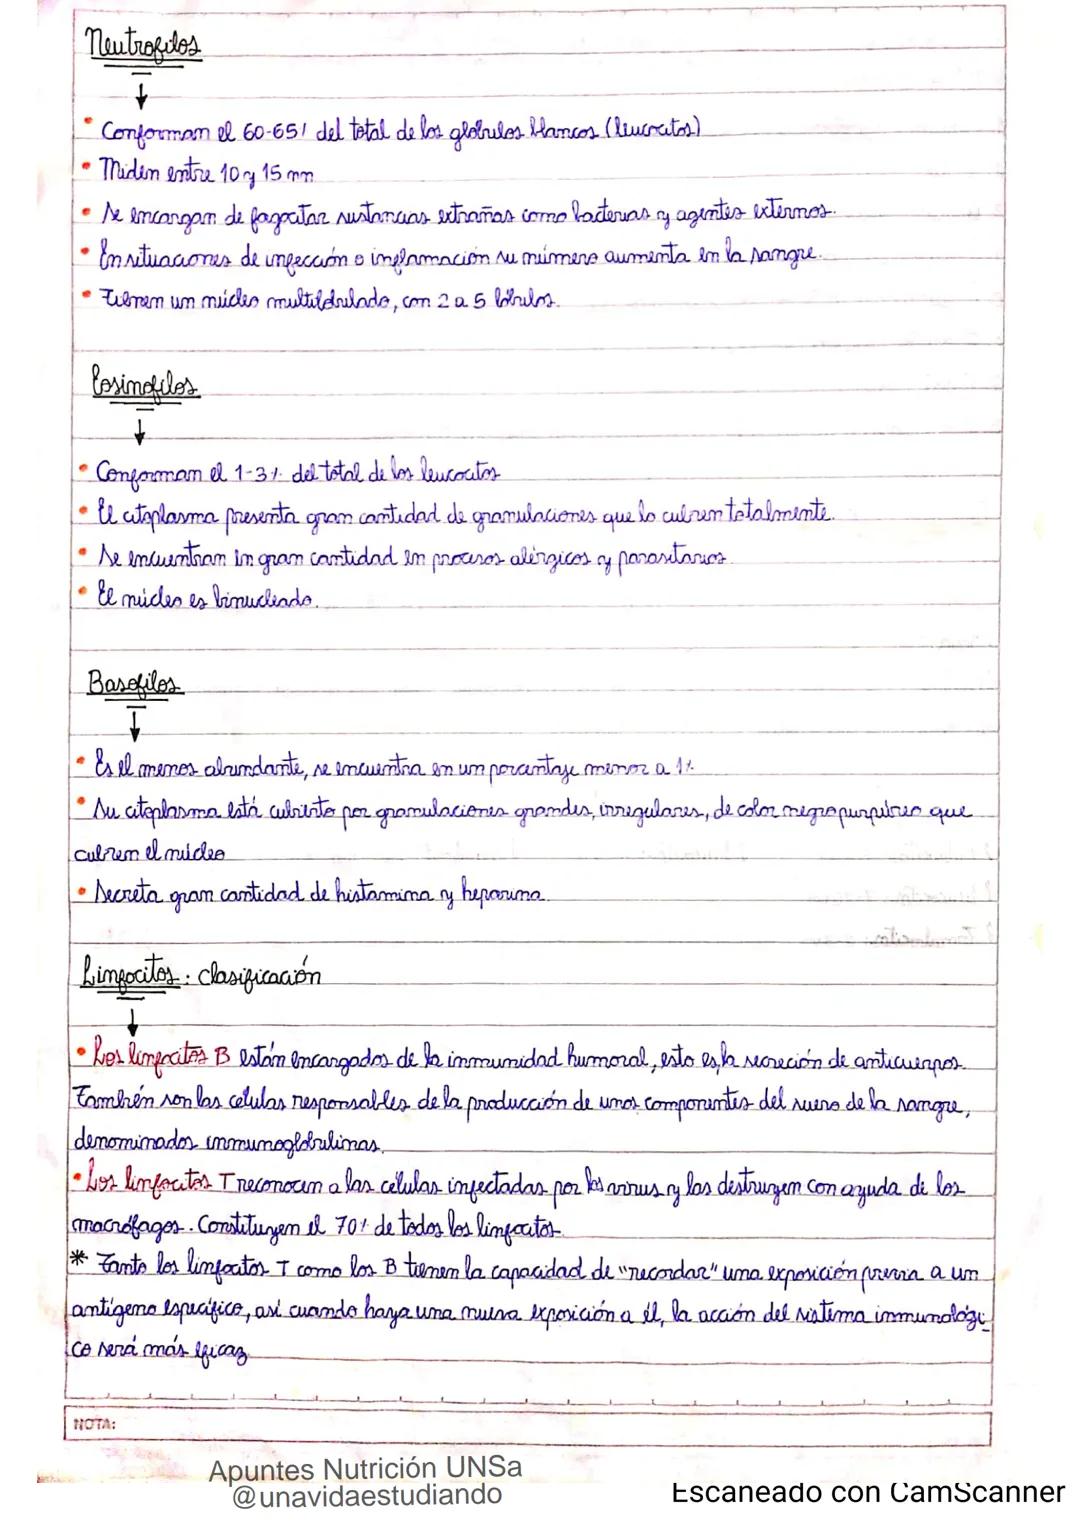 Neutrofilos
• Conforman el 60-65% del total de los glóbulos blancos (leucocitos)
• Miden entre 10 y 15 mn
• Se encargan de fagocitar sustancias extrañas como bacterias y agentes externos.
• En situaciones de infección o inflamación su número aumenta en la sangre.
• Tienen un núcleo multilobulado, con 2 a 5 lóbulos.
Eosinofilos
• Conforman el 1-3% del total de los leucocitos
• El citoplasma presenta gran cantidad de granulaciones que lo cubren totalmente.
• Se encuentran en gran cantidad en procesos alérgicos y parasitarios.
• El núcleo es binucleado.
Basofilos
• Es el menos abundante, se encuentra en un porcentaje menor a 1%
• Su citoplasma está cubierto por granulaciones grandes, irregulares, de color negro purpúreo que
cubren el núcleo
• Secreta gran cantidad de histamina y heparina.
Linfocitos: clasificación
• Los linfocitos B están encargados de la inmunidad humoral, esto es, la secreción de anticuerpos.
También son las celulas responsables de la producción de unos componentes del suero de la sangre,
denominados inmunoglobulinas.
• Los linfocitos T reconocen a las células infectadas por los virus y las destruyen con ayuda de los
macrófagos. Constituyen el 70% de todos los linfocitos.
* Tanto los linfocitos T como los B tienen la capacidad de "recordar" una exposición previa a un
antígeno específico, así cuando haya una nueva exposición a él, la acción del sistema inmunológi
co será más eficaz.
NOTA:
Apuntes Nutrición UNSa
@unavidaestudiando
Escaneado con CamScanner